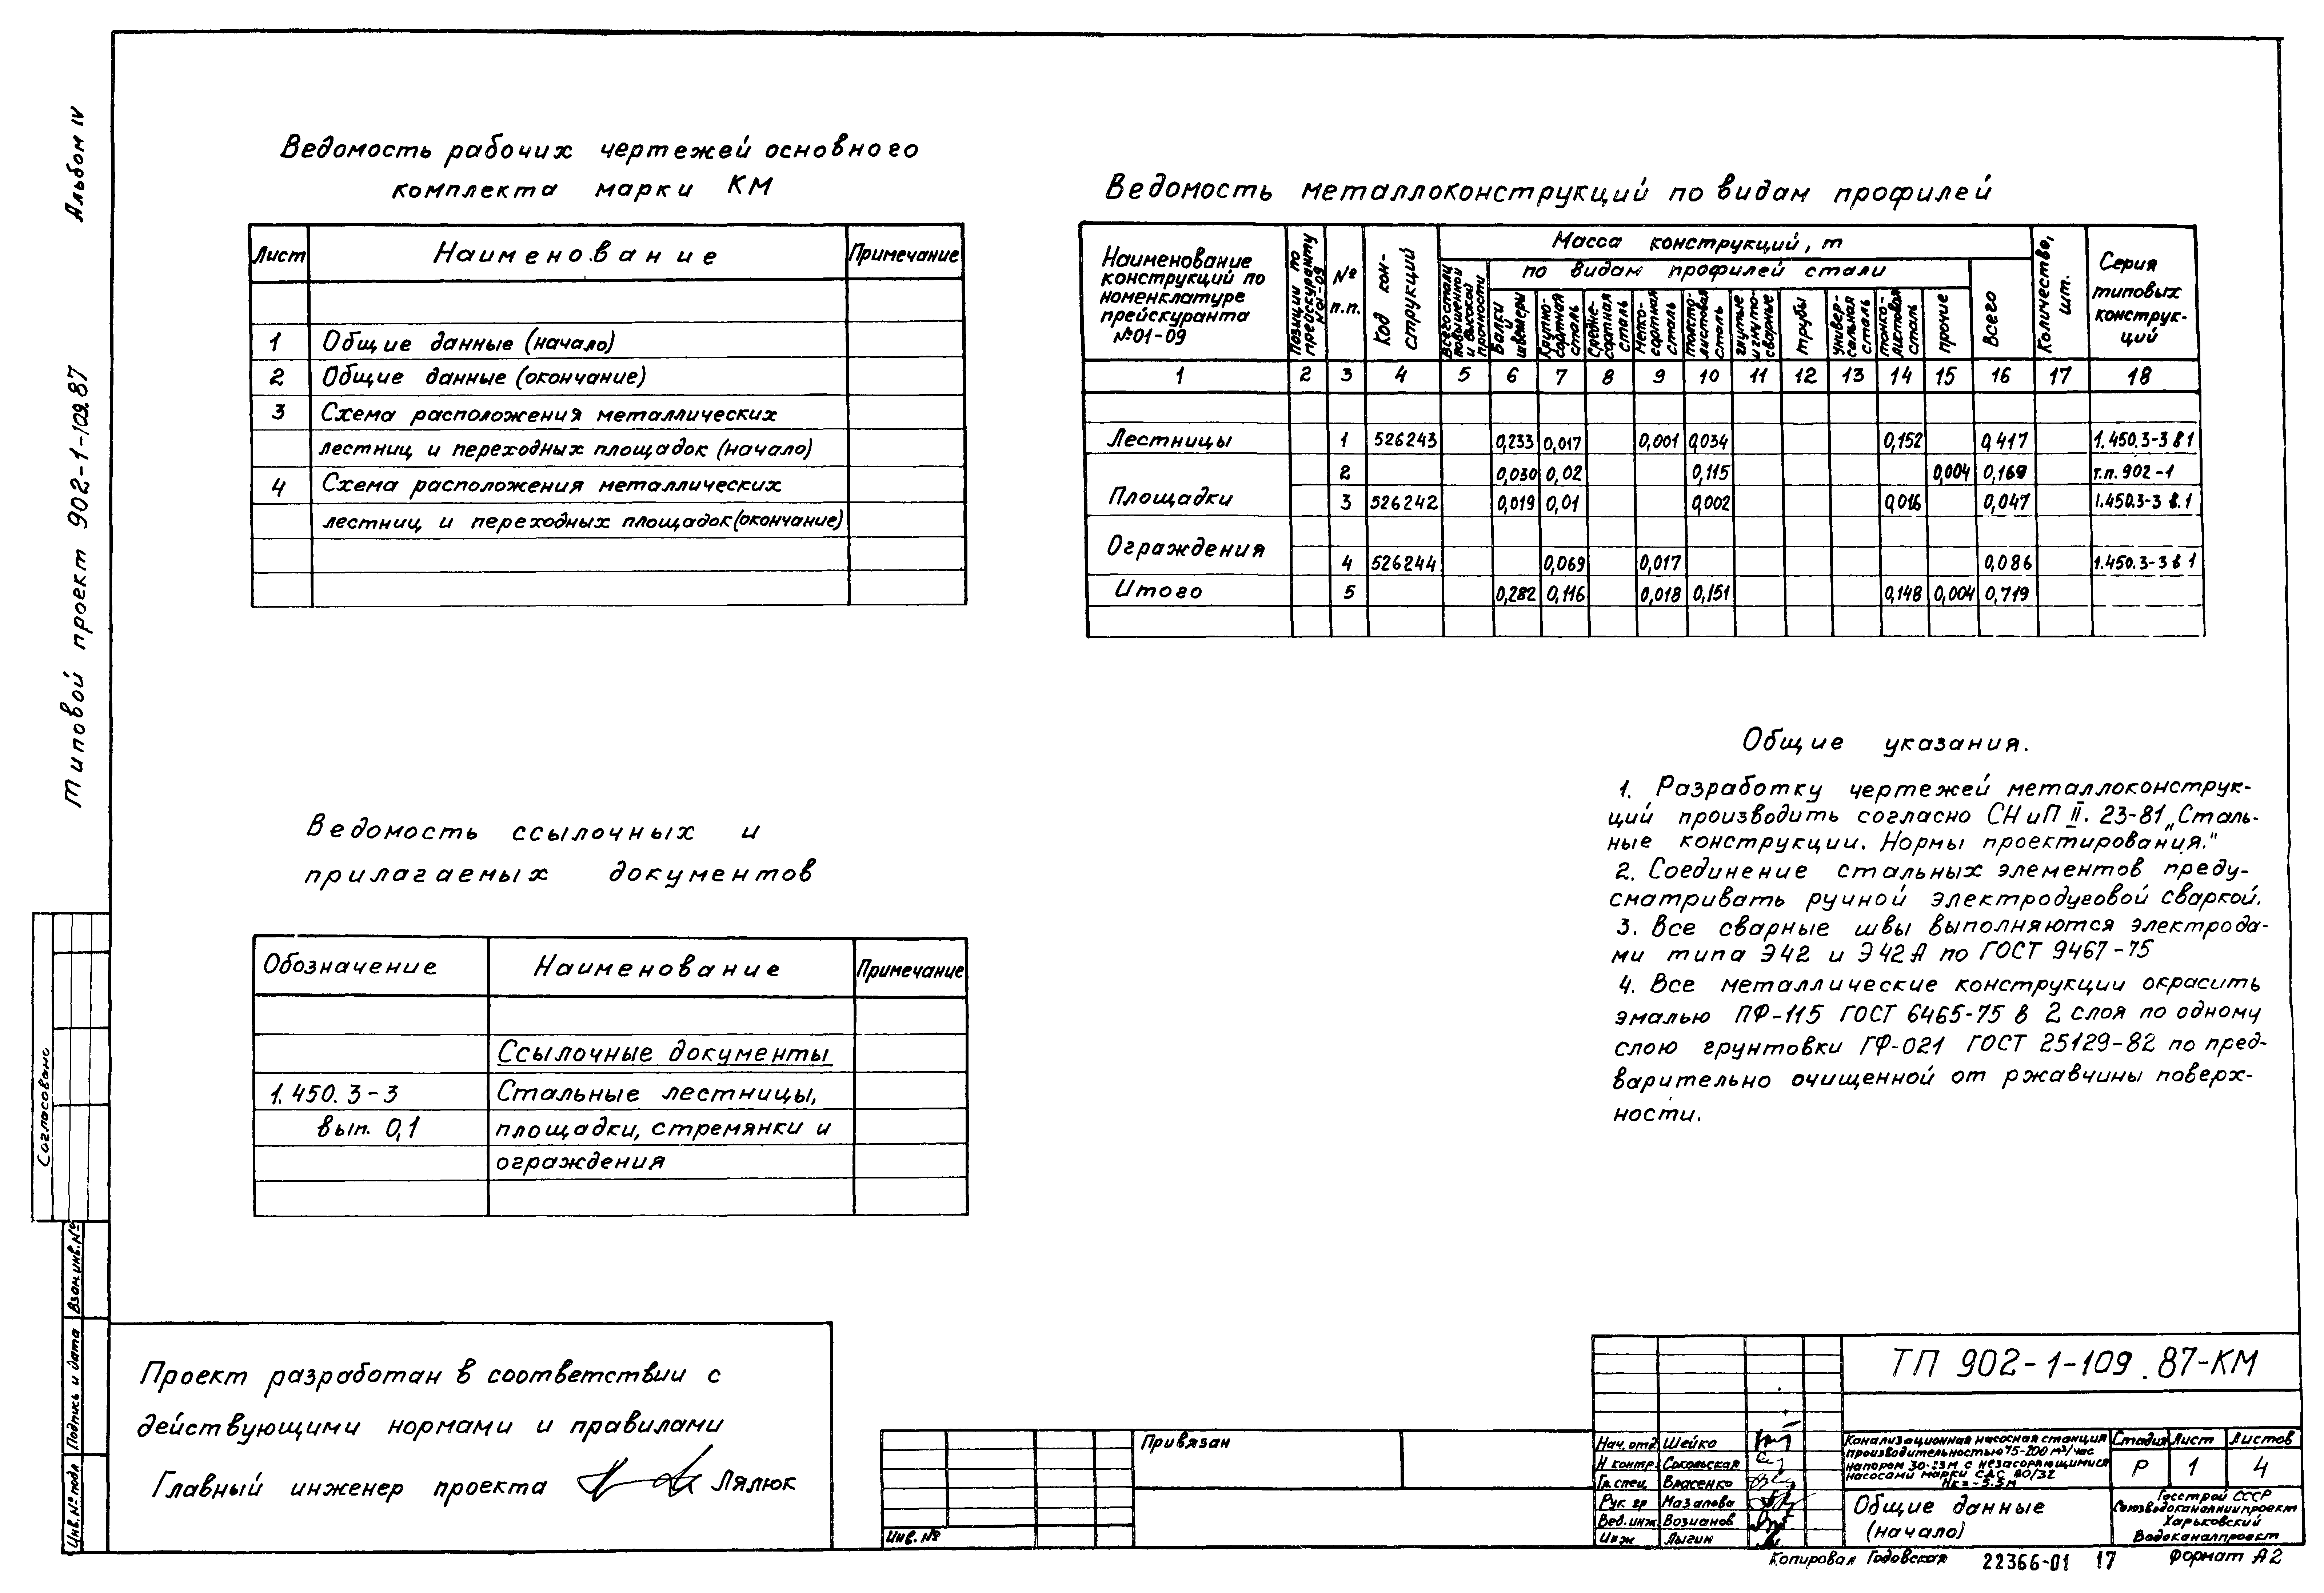 Альбом IV
Типовой проект 902-1-109.87
Согласовано
Взам.инв.№
Подпись и дата
Инв.№ подл
Ведомость рабочих чертежей основного
комплекта марки КМ
Лист Наименование Примечание
1 Общие данные (начало)
2 Общие данные (окончание)
3 Схема расположения металлических
лестниц и переходных площадок (начало)
4 Схема расположения металлических
лестниц и переходных площадок (окончание)
Ведомость металлоконструкций по видам профилей
Наименование
конструкций по
номенклатуре
прейскуранта
№01-09
Позиции по
прейскуранту
№01-09
№
п.п.
Код кон-
струкций
Масса конструкций, т
Всего стали
повышенной
и высокой
прочности
по видам профилей стали
Балки
и
швеллеры
Крупно-
сортная
сталь
Средне-
сортная
сталь
Мелко-
сортная
сталь
Толсто-
листовая
сталь
гнутые
и гнуто-
сварные
трубы
универ-
сальная
сталь
тонко-
листовая
сталь
прочие
Всего
Количество,
шт.
Серия
типовых
конструк-
ций
1 2 3 4 5 6 7 8 9 10 11 12 13 14 15 16 17 18
Лестницы 1 526243 0,233 0,017 0,001 0,034 0,152 0,417 1.450.3-3 в 1
2 0,030 0,02 0,115 0,004 0,169 т.п. 902-1
Площадки 3 526242 0,019 0,01 0,002 0,016 0,047 1.450.3-3 в.1
Ограждения
4 526244 0,069 0,017 0,086 1.450.3-3 в 1
Итого 5 0,282 0,116 0,018 0,151 0,148 0,004 0,719
Ведомость ссылочных и
прилагаемых документов
Обозначение Наименование Примечание
Ссылочные документы
1.450.3-3 Стальные лестницы,
вып. 0,1 площадки, стремянки и
ограждения
Общие указания.
1. Разработку чертежей металлоконструк-
ций производить согласно СНиП II. 23-81 „Сталь-
ные конструкции. Нормы проектирования."
2. Соединение стальных элементов преду-
сматривать ручной электродуговой сваркой.
3. Все сварные швы выполняются электрода-
ми типа Э42 и Э42А по ГОСТ 9467-75
4. Все металлические конструкции окрасить
эмалью ПФ-115 ГОСТ 6465-75 в 2 слоя по одному
слою грунтовки ГФ-021 ГОСТ 25129-82 по пред-
варительно очищенной от ржавчины поверх-
ности.
Проект разработан в соответствии с
действующими нормами и правилами
Главный инженер проекта Лялюк
Привязан
Инв. №
Нач. отд Шейко
Н контр. Сокольская
Гл.спец Власенко
Рук гр Мазалова
Вед. инж. Возианов
Инж Лыгин
ТП 902-1-109.87-КМ
Канализационная насосная станция
производительностью 75-200 м³/час
напором 30-23м с незасоряющимися
насосами марки СДС 80/32
Нк=-5.5м
Стадия Лист Листов
Р 1 4
Общие данные
(начало)
Госстрой СССР
Союзводоканалниипроект
Харьковский
Водоканалпроект
Копировал Годовская 22366-01 17 Формат А2